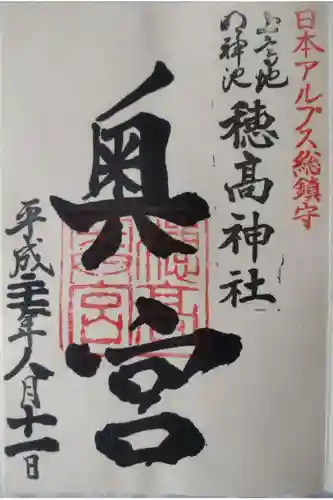 日本アルプス総鎮守
上高地
明神池
穂髙神社
奥宮
穂高
奥宮
平成二十二年八月十一日